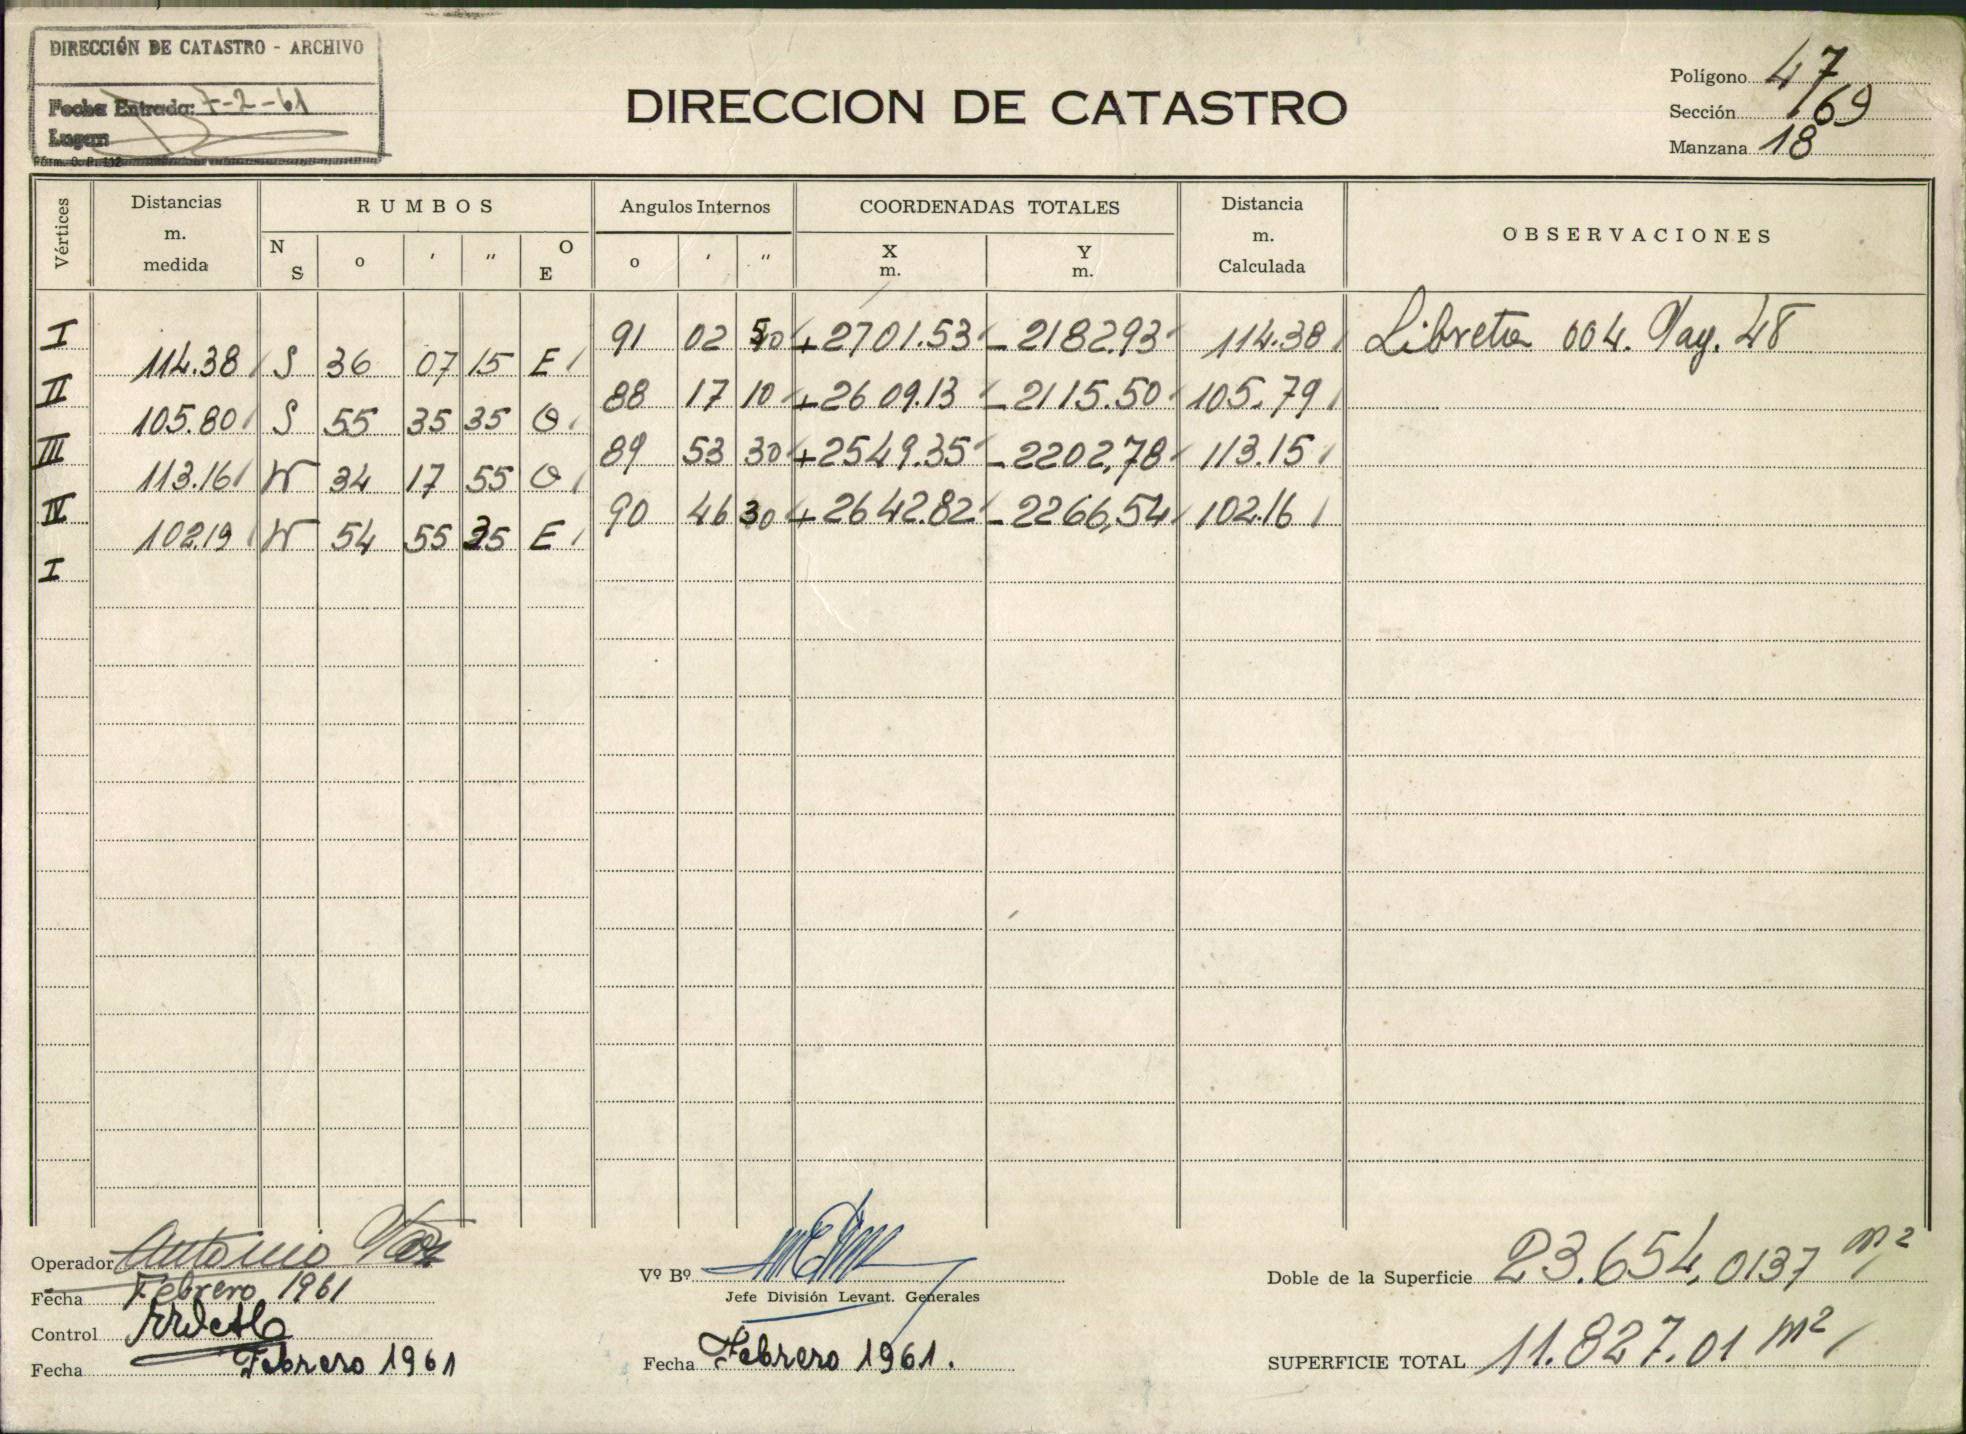 DIRECCIÓN DE CATASTRO - ARCHIVO
Fecha Entrada: 7-2-61
Lugar:
Fórm. O. P. 112
DIRECCION DE CATASTRO
Polígono 47
Sección 169
Manzana 18
Vértices Distancias m. medida RUMBOS Angulos Internos COORDENADAS TOTALES Distancia m. Calculada OBSERVACIONES
N S o ′ ″ O E o ′ ″ X m. Y m.
I 91 02 50 +2701.53 -2182.93 114.38 Libreta 004. Pag. 48
114.38 S 36 07 15 E
II 88 17 10 +2609.13 -2115.50 105.79
105.80 S 55 35 35 O
III 89 53 30 +2549.35 -2202,78 113.15
113.16 N 34 17 55 O
IV 90 46 30 +2642.82 -2266,54 102.16
102.19 N 54 55 35 E
I
Operador Antonio
Fecha Febrero 1961
Control
Fecha Febrero 1961
Vº Bº
Jefe División Levant. Generales
Fecha Febrero 1961.
Doble de la Superficie 23.654,0137 m²
SUPERFICIE TOTAL 11.827.01 m²